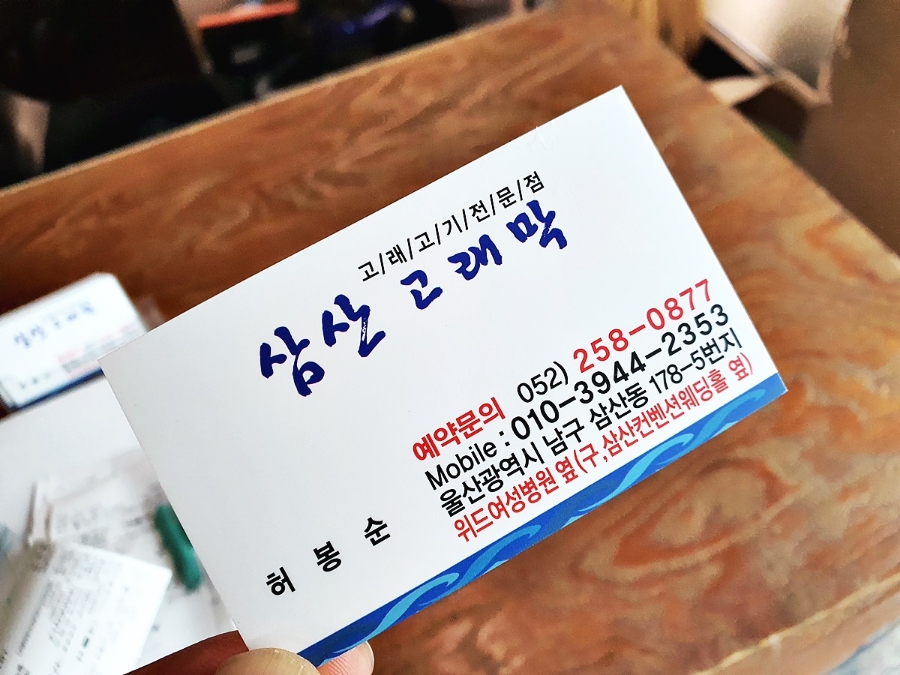 고/래/고/기/전/문/점
삼산 고래막
예약문의 052) 258-0877
Mobile : 010-3944-2353
울산광역시 남구 삼산동 178-5번지
위드여성병원 옆(구,삼산컨벤션웨딩홀 옆)
허 봉 순
삼산 고래막